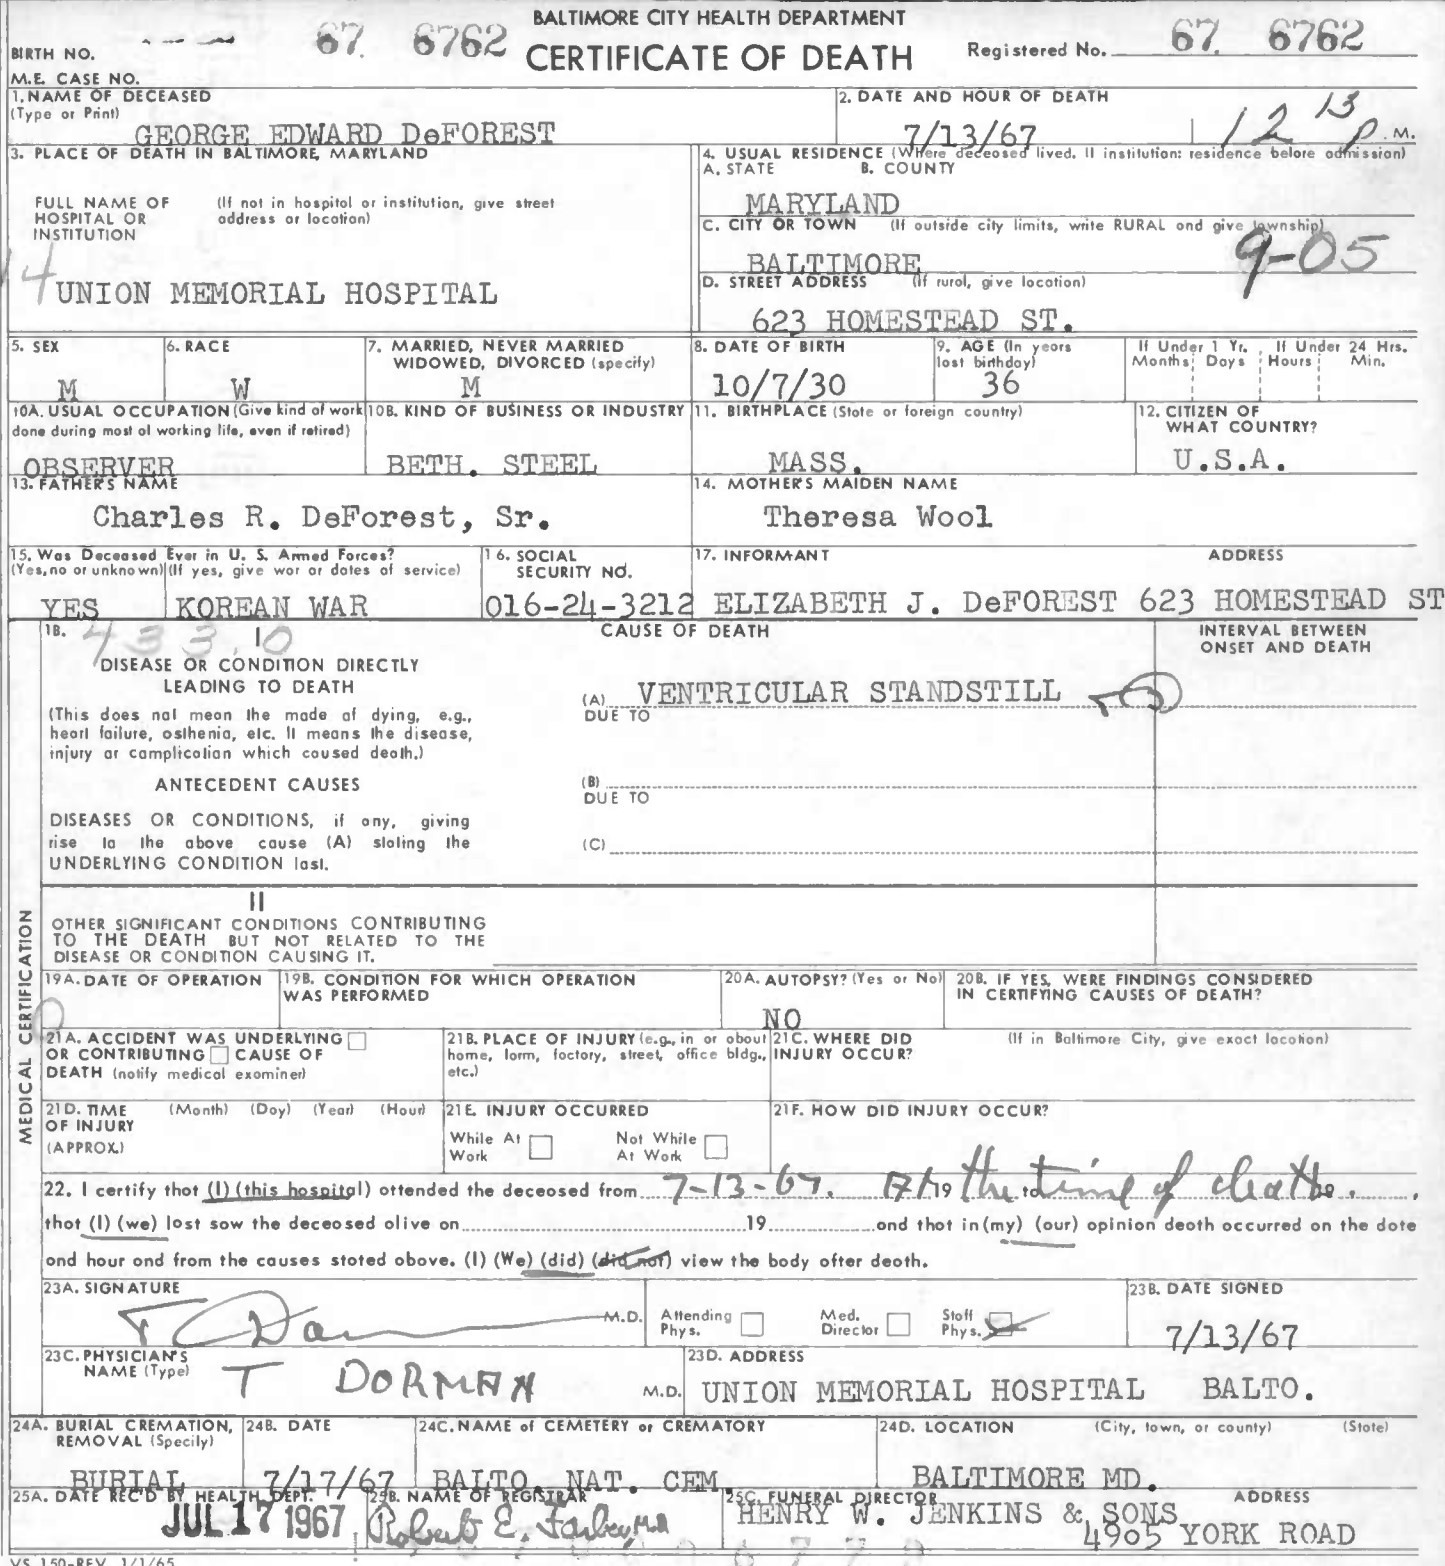 BALTIMORE CITY HEALTH DEPARTMENT
CERTIFICATE OF DEATH
BIRTH NO. 67. 6762
Registered No. 67. 6762
M.E. CASE NO.
1. NAME OF DECEASED
(Type or Print)
GEORGE EDWARD DeFOREST
2. DATE AND HOUR OF DEATH
7/13/67 12 13 P.M.
3. PLACE OF DEATH IN BALTIMORE, MARYLAND
FULL NAME OF HOSPITAL OR INSTITUTION
(If not in hospital or institution, give street address or location)
14
UNION MEMORIAL HOSPITAL
4. USUAL RESIDENCE (Where deceased lived. If institution: residence before admission)
A. STATE B. COUNTY
MARYLAND
C. CITY OR TOWN (If outside city limits, write RURAL and give township)
BALTIMORE 9-05
D. STREET ADDRESS (If rural, give location)
623 HOMESTEAD ST.
5. SEX
M
6. RACE
W
7. MARRIED, NEVER MARRIED WIDOWED, DIVORCED (specify)
M
8. DATE OF BIRTH
10/7/30
9. AGE (In years last birthday)
36
If Under 1 Yr. Months Days
If Under 24 Hrs. Hours Min.
10A. USUAL OCCUPATION (Give kind of work done during most of working life, even if retired)
OBSERVER
10B. KIND OF BUSINESS OR INDUSTRY
BETH. STEEL
11. BIRTHPLACE (State or foreign country)
MASS.
12. CITIZEN OF WHAT COUNTRY?
U.S.A.
13. FATHER'S NAME
Charles R. DeForest, Sr.
14. MOTHER'S MAIDEN NAME
Theresa Wool
15. Was Deceased Ever in U. S. Armed Forces?
(Yes, no or unknown) (If yes, give war or dates of service)
YES KOREAN WAR
16. SOCIAL SECURITY NO.
016-24-3212
17. INFORMANT ADDRESS
ELIZABETH J. DeFOREST 623 HOMESTEAD ST
18. 433.0
CAUSE OF DEATH
INTERVAL BETWEEN ONSET AND DEATH
I
DISEASE OR CONDITION DIRECTLY
LEADING TO DEATH
(This does not mean the mode of dying, e.g.,
heart failure, asthenia, etc. It means the disease,
injury or complication which caused death.)
(A) VENTRICULAR STANDSTILL
DUE TO
ANTECEDENT CAUSES
(B)
DUE TO
DISEASES OR CONDITIONS, if any, giving
rise to the above cause (A) stating the
UNDERLYING CONDITION last.
(C)
II
OTHER SIGNIFICANT CONDITIONS CONTRIBUTING
TO THE DEATH BUT NOT RELATED TO THE
DISEASE OR CONDITION CAUSING IT.
MEDICAL CERTIFICATION
19A. DATE OF OPERATION
19B. CONDITION FOR WHICH OPERATION WAS PERFORMED
20A. AUTOPSY? (Yes or No)
NO
20B. IF YES, WERE FINDINGS CONSIDERED IN CERTIFYING CAUSES OF DEATH?
21A. ACCIDENT WAS UNDERLYING
OR CONTRIBUTING CAUSE OF
DEATH (notify medical examiner)
21B. PLACE OF INJURY (e.g., in or about
home, farm, factory, street, office bldg.,
etc.)
21C. WHERE DID INJURY OCCUR?
(If in Baltimore City, give exact location)
21D. TIME OF INJURY (APPROX.)
(Month) (Day) (Year) (Hour)
21E. INJURY OCCURRED
While At Work
Not While At Work
21F. HOW DID INJURY OCCUR?
22. I certify that (I) (this hospital) attended the deceased from 7-13-67. 19 to the time of death.
that (I) (we) last saw the deceased alive on 19 and that in (my) (our) opinion death occurred on the date
and hour and from the causes stated above. (I) (We) (did) (did not) view the body after death.
23A. SIGNATURE
M.D.
Attending Phys.
Med. Director
Staff Phys.
23B. DATE SIGNED
7/13/67
23C. PHYSICIAN'S NAME (Type)
T DORMAN M.D.
23D. ADDRESS
UNION MEMORIAL HOSPITAL BALTO.
24A. BURIAL CREMATION, REMOVAL (Specify)
BURIAL
24B. DATE
7/17/67
24C. NAME of CEMETERY or CREMATORY
BALTO. NAT. CEM.
24D. LOCATION (City, town, or county) (State)
BALTIMORE MD.
25A. DATE REC'D BY HEALTH DEPT.
JUL 17 1967
25B. NAME OF REGISTRAR
Robert E. Farber, M.D.
25C. FUNERAL DIRECTOR ADDRESS
HENRY W. JENKINS & SONS
4905 YORK ROAD
VS 150-REV. 1/1/65